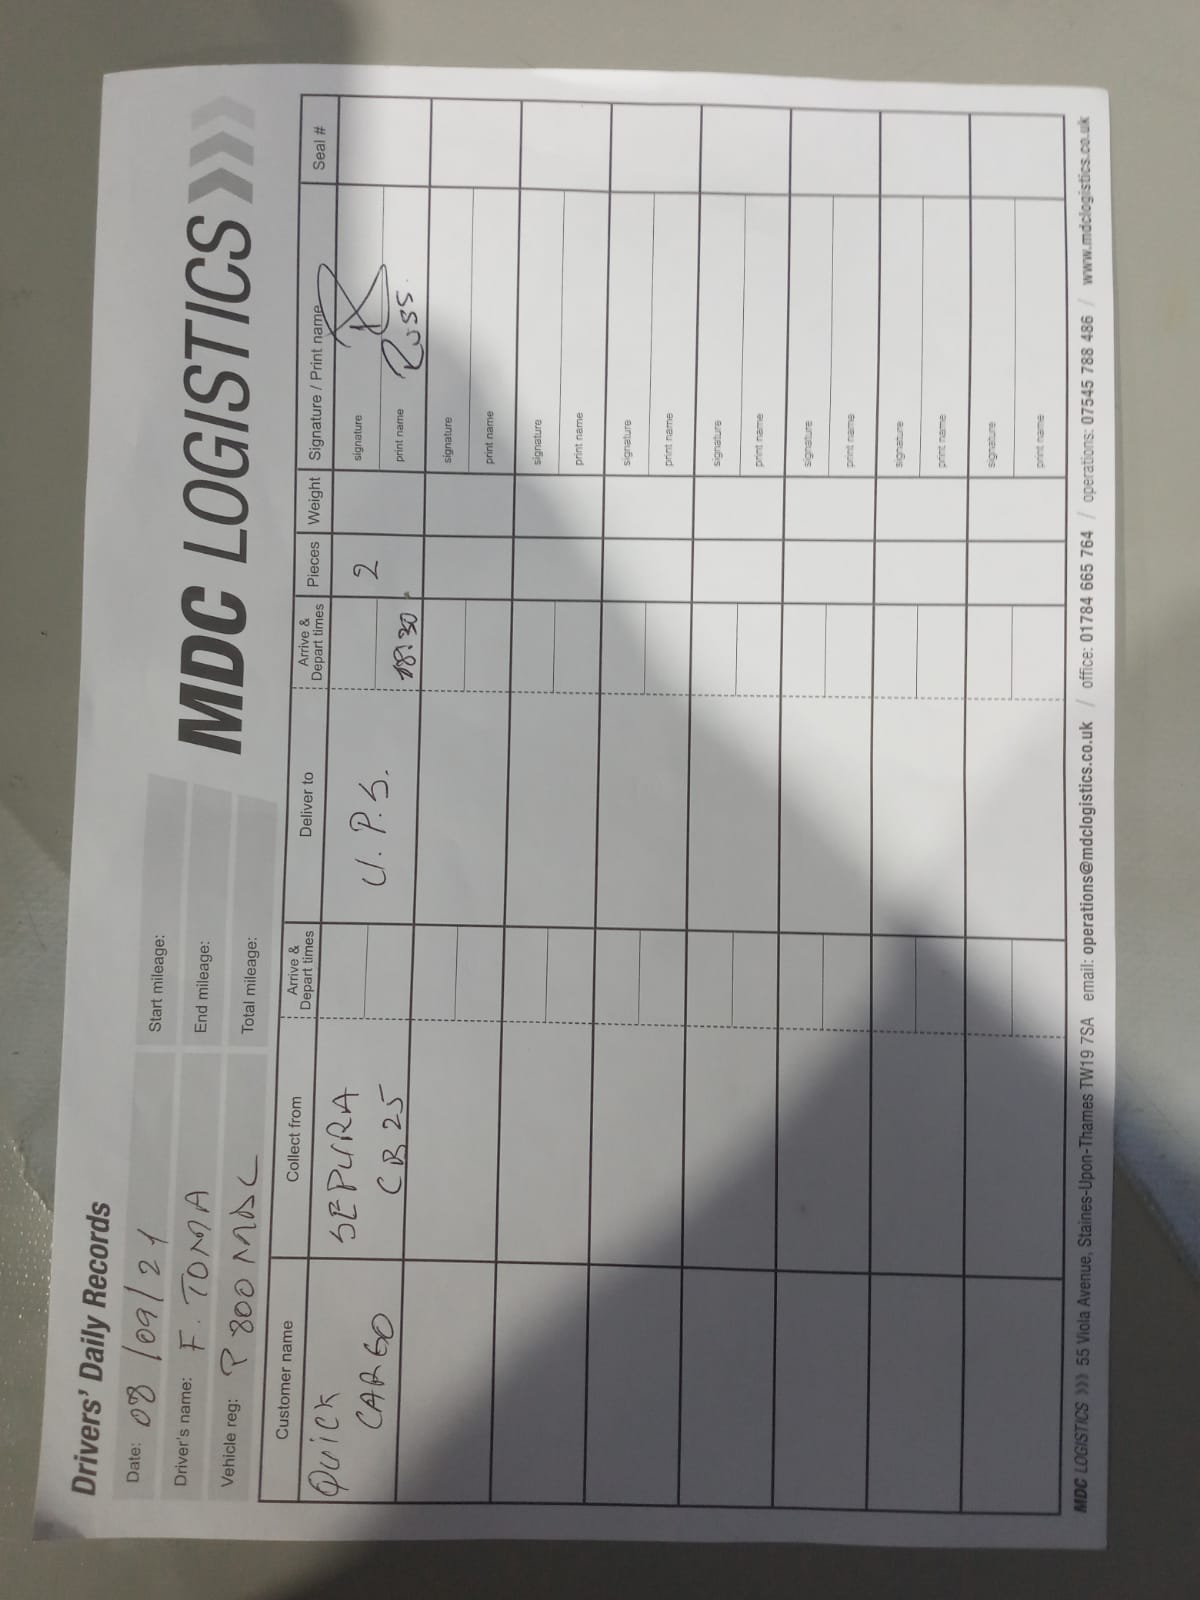 Drivers' Daily Records
MDC LOGISTICS
Date: 08/09/21
Start mileage:
Driver's name: F. TOMA
End mileage:
Vehicle reg: P 800 MDC
Total mileage:
Customer name
Collect from
Arrive & Depart times
Deliver to
Arrive & Depart times
Pieces
Weight
Signature / Print name
Seal #
QUICK CARGO
SEPURA CB25
U.P.S.
18:30
2
signature
print name Russ.
signature
print name
signature
print name
signature
print name
signature
print name
signature
print name
signature
print name
signature
print name
MDC LOGISTICS >>> 55 Viola Avenue, Staines-Upon-Thames TW19 7SA email: operations@mdclogistics.co.uk / office: 01784 665 764 / operations: 07545 788 486 / www.mdclogistics.co.uk